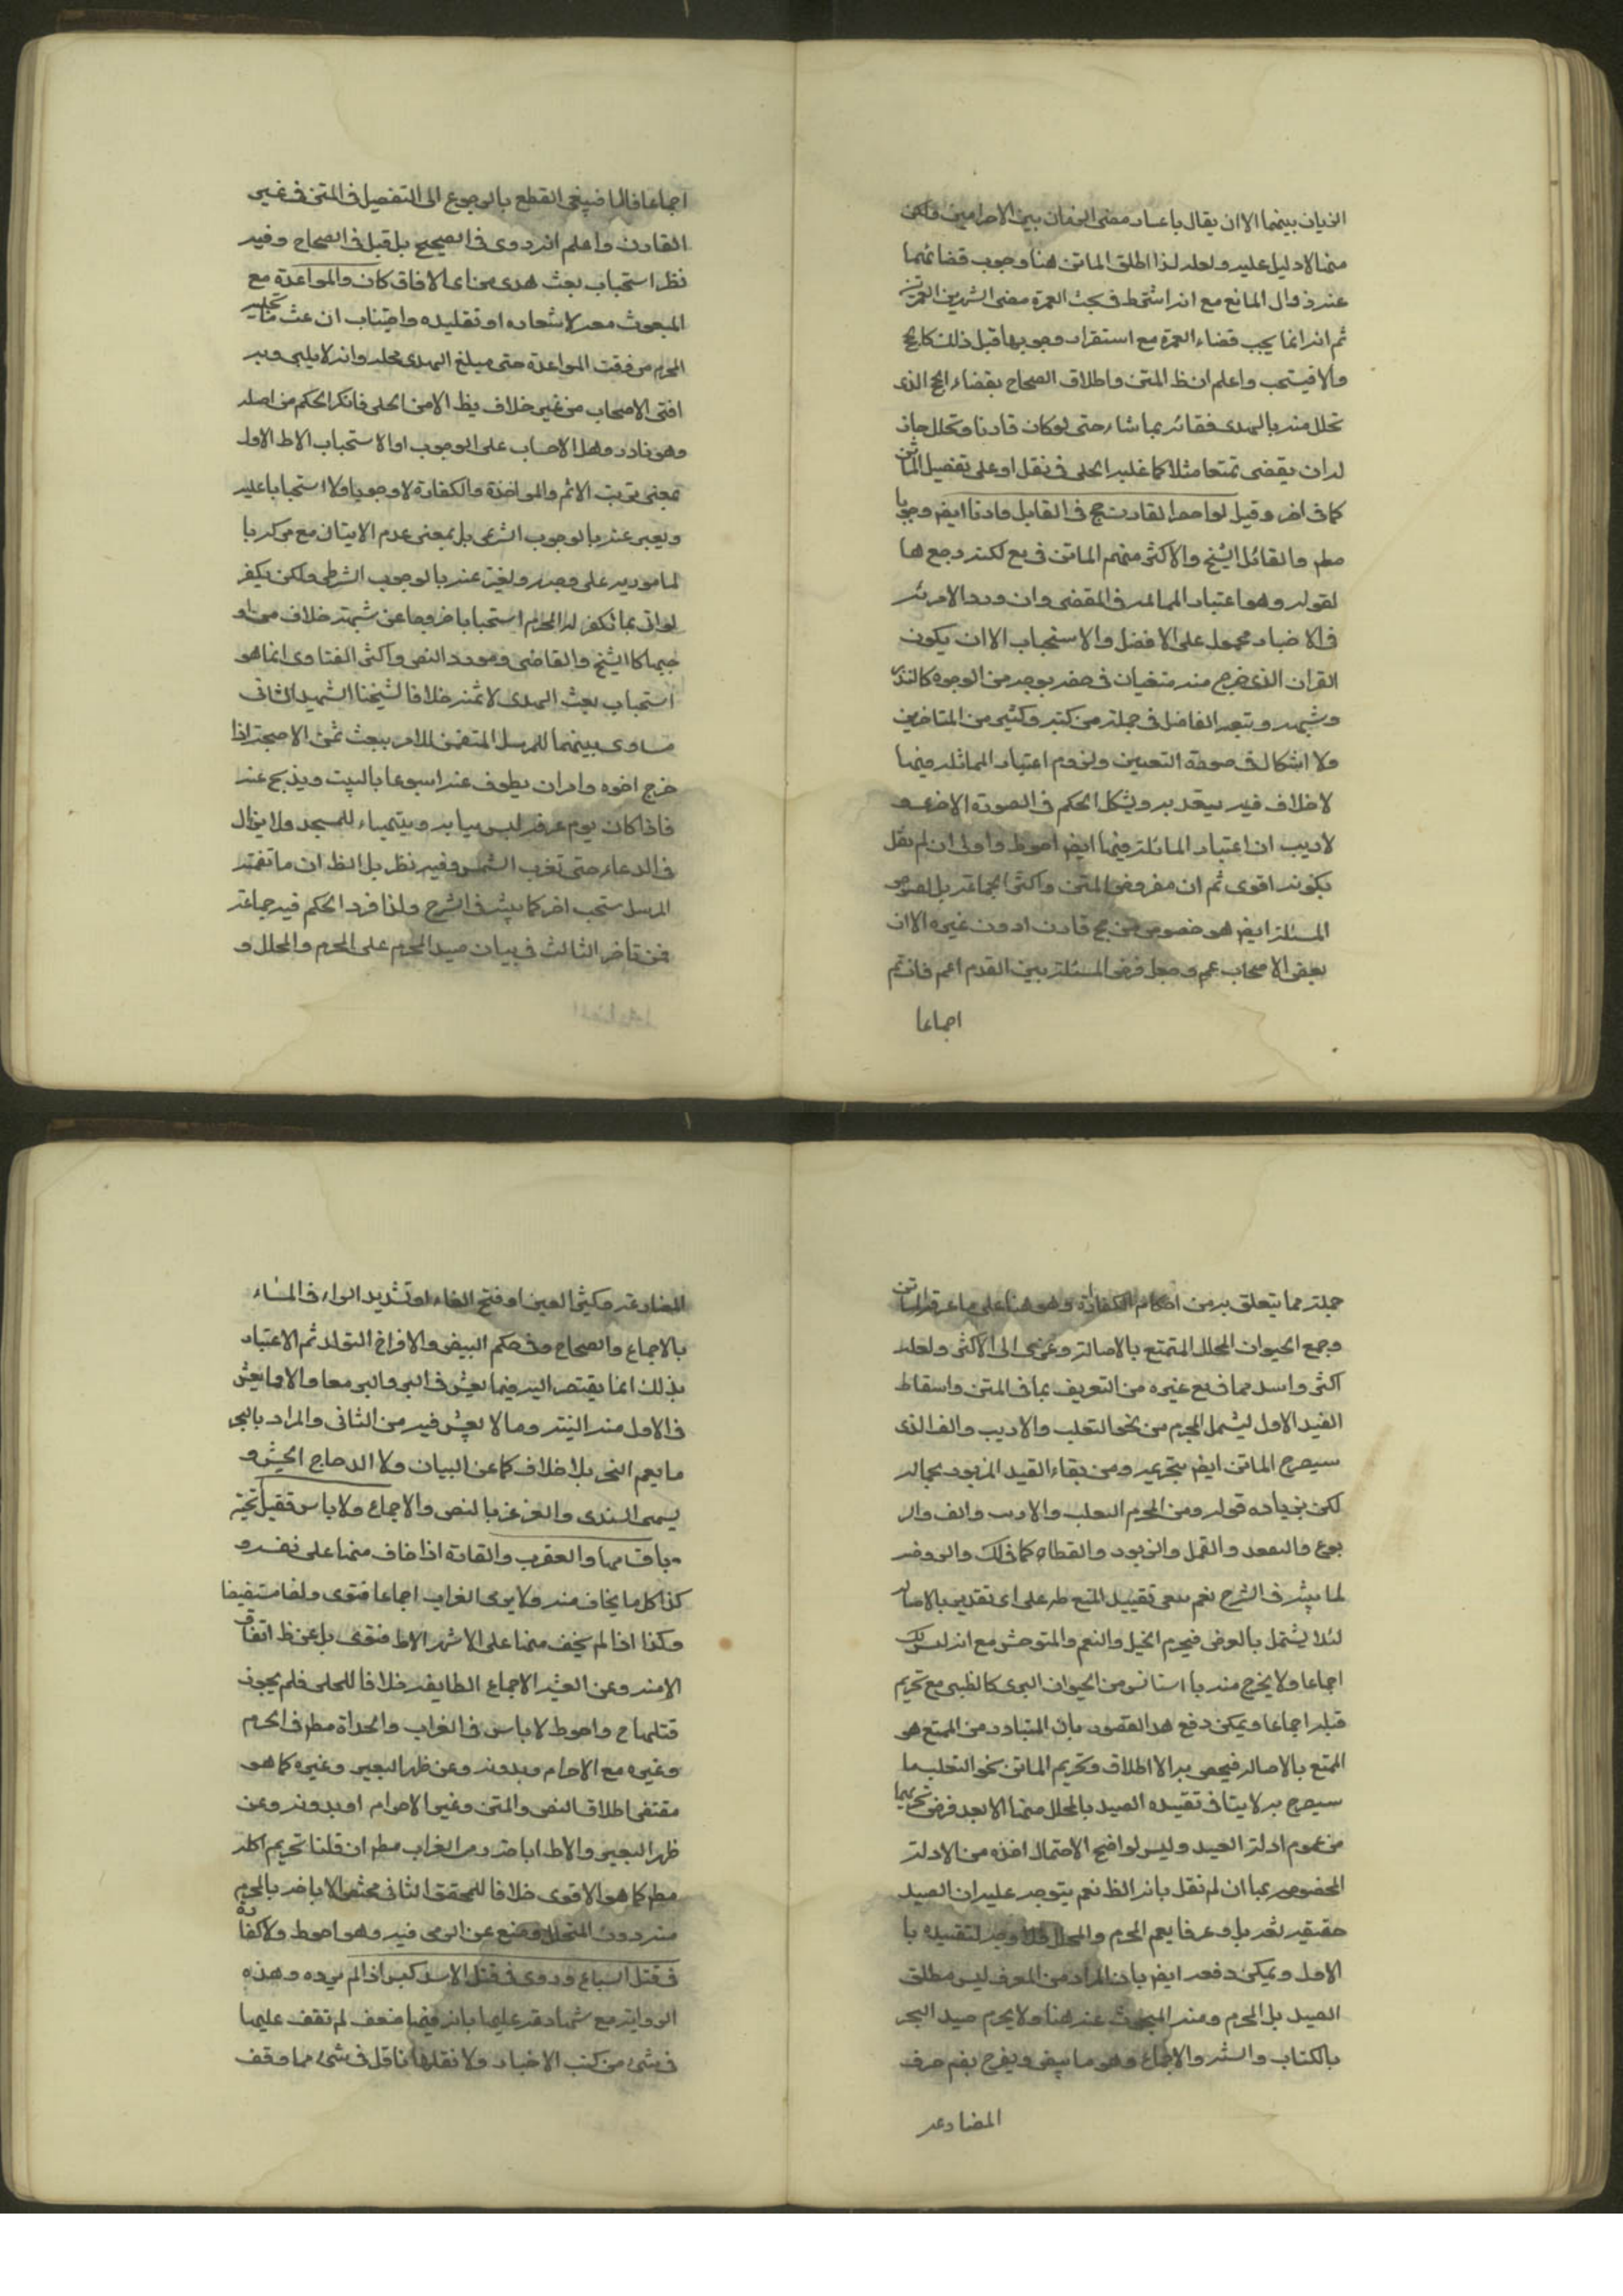 الزمان بينهما الا ان يقال باعتبار مضى الزمان بين الاحرامين ولكن
هنا لا دليل عليه ولعله لذا اطلق الماتن هنا وجوب قضائهما
عند زوال المانع مع انه اشترط فى بحث العمرة مضى الشهر بين العمرتين
ثم انه انما يجب قضاء العمرة مع استقرار وجوبها قبل ذلك كالحج
والا فيستحب واعلم ان ظ المتن واطلاق الصحاح بقضاء الحج الذى
تحلل منه بالهدى فقائه بما شاء حتى لو كان قارنا وتحلل جاز
له ان يقضى تمتعا مثلا كما عليه الحلى فى نقل او على تفصيل الماتن
كما فى اخر وقيل لو احصر القارن حج فى القابل قارنا ايض وجوبا
مطم والقائل الشيخ والاكثر منهم الماتن فى يع لكنه رجع هنا
لقوله وهو اعتبار المماثلة فى المقضى وان ورد الامر به
فى الاخبار محمول على الافضل والاستحباب الا ان يكون
القران الذى خرج منه متعيّنا فى حقه بوجه من الوجوه كالنذر
وشبهه وتبعه الفاضل فى جملة من كتبه وكثير من المتاخرين
ولا اشكال فى صورة التعيين ولزوم اعتبار المماثلة فيها
لا خلاف فيه يعتد به ويشكل الحكم فى الصورة الاخرى و
لا ريب ان اعتبار المماثلة فيها ايض احوط واولى ان لم نقل
بكونه اقوى ثم ان مفروض المتن واكثر الجماعة بل نصوص
المسئلة ايض هو خصوص من حج قارنا دون غيره الا ان
بعض الاصحاب عم وجعل فرض المسئلة بين القدم اعم فان تم
اجماعا
اجماعا فالمناص القطع بالرجوع الى التفصيل فى المتن فى غير
القارن واعلم انه روى فى الصحيح بل قيل فى الصحاح وفيه
نظر استحباب بعث هدى من اى الافاق كان والمواعدة مع
المبعوث معه لاشعاره او تقليده واجتناب ان عث ما يجتنبه
المحرم من وقت المواعدة حتى يبلغ الهدى محله وانه لا يلبى وبه
افتى الاصحاب من غير خلاف يظ الا من الحلى فانكر الحكم من اصله
وهو نادر وهل الاجتناب على الوجوب او الاستحباب الاظ الاول
بمعنى ترتب الاثم والمواخذة والكفارة لا وجوبا ولا استحبابا عليه
ويعبر عنه بالوجوب الشرعى بل بمعنى عدم الاتيان مع تركه با
لمامور به على وجهه ولغيره عنه بالوجوب الشرطى ولكن يكفر
لو اتى بما تكفر له المحرم استحبابا خروجا عن شبهة خلاف من او
جبها كالشيخ والقاضى ومورد النص واكثر الفتاوى انما هو
استحباب بعث الهدى لا ثمنه خلافا لشيخنا الشهيد الثانى
فساوى بينهما للمرسل المتضمن للامر ببعث ثمن الاضحية اذا
خرج اخوه وامره ان يطوف عنه اسبوعا بالبيت ويذبح عنه
فاذا كان يوم عرفة لبس ثيابه ويتهيأ للمسجد ولا يزال
فى الدعاء حتى تغرب الشمس وفيه نظر بل الظ ان ما تضمنه
المرسل مستحب اخر كما بينه فى الشرح ولذا فرد الحكم فيه جماعة
ممن تاخر الثالث فى بيان صيد المحرم على المحرم والمحلل و
جملة مما يتعلق به من احكام الكفارة وهو هنا على ما عرفه الماتن
وجمع الحيوان المحلل الممتنع بالاصالة وعزى الى الاكثر ولعله
اكثر واسد مما فى يع عنيره من التعريف بما فى المتن واسقاط
القيد الاول ليشمل المحرم من نحو الثعلب والارنب والضب الذى
سيصرح الماتن ايض بتحريمه ومن بقاء القيد المزبور بحاله
لكن بزياده قوله ومن المحرم الثعلب والارنب والضب والير
بوع والقنفذ والقمل والزنبور والعظاه كما فى ذلك والروضه
لما بينه فى الشرح نعم ينبغى تقييد الممتنع طر على اى تقدير بالاصاله
لئلا يشتمل بالعرض فيحرم الخيل والنعم والمتوحش مع انه ليس كك
اجماعا ولا يخرج منه ما استانس من الحيوان البرى كالظبى مع تحريم
قتله اجماعا ويمكن دفع هذا القصور بان المتبادر من الممتنع هو
الممتنع بالاصالة فيحصر به الاطلاق وتحريم الماتن نحو الثعلب مما
سيصرح به لا ينافى تقييده الصيد بالمحلل منها الا بعد فرض تحريمها
من عموم ادلة الصيد وليس لواضح لاحتمال اخذه من الادلة
المخصوصة بها ان لم نقل بانه الظ نعم يتوجه عليه ان الصيد
حقيقة لغة بل وعرفا يعم المحرم والمحلل فلا وجه لتقييده با
لاول ويمكن دفعه ايض بان المراد من المعرف ليس مطلق
الصيد بل المحرم ومنه المبحوث عنه هنا ولا يحرم صيد البحر
بالكتاب والسنة والاجماع وهو ما يبيض ويفرخ بضم حرف
المضارعة
المضارعة وكسر العين او فتح الفاء او تشديد الراء فى الماء
بالاجماع والصحاح وفى حكم البيض والافراخ التولد ثم الاعتبار
بذلك انما يفتقر اليه فيما يعيش فى البر والبحر معا والا فما يعيش
فى الاول منه البته وما لا يعيش فيه من الثانى والمراد بالبحر
ما يعم النهر بلا خلاف كما عن التبيان ولا الدجاج الحبشى و
يسمى السندى والغرغر بالنص والاجماع ولا باس بقتل الحية
باقسامها والعقرب والفارة اذا خاف منها على نفسه و
كذا كل ما يخاف منه ولا يرمى الغراب اجماعا فتوى ونصا مستفيضا
وكذا اذا لم يخف منها على الاشهر الاظ فتوى بل عن ظ اتفاق
الامنه وعن الغنية الاجماع الطايفه خلافا للحلى فلم يجوز
قتلهما ح واحوط لا باس فى الغراب والحداة مطم فى الحرم
وغيره مع الاحرام وبدونه وعن ظهر البعير وغيره كما هو
مقتضى اطلاق النص والمتن وغير الاحرام او بدونه وعن
ظهر البعير والاظ اباحته رمى الغراب مطم ان قلنا تحريم اكله
مطم كما هو الاقوى خلافا للمحقق الثانى فخص الاباحه بالمحرم
منه دون المحلل ومنع عن الرمى فيه وهو احوط ولا كفارة
فى قتل السباع وروى فى قتل الاسد كبش اذا لم يرده وهذه
الرواية مع شهادة عليها بانه فيها ضعف لم نقف عليها
فى شئ من كتب الاخبار ولا نقلها ناقل فى شئ مما وقف